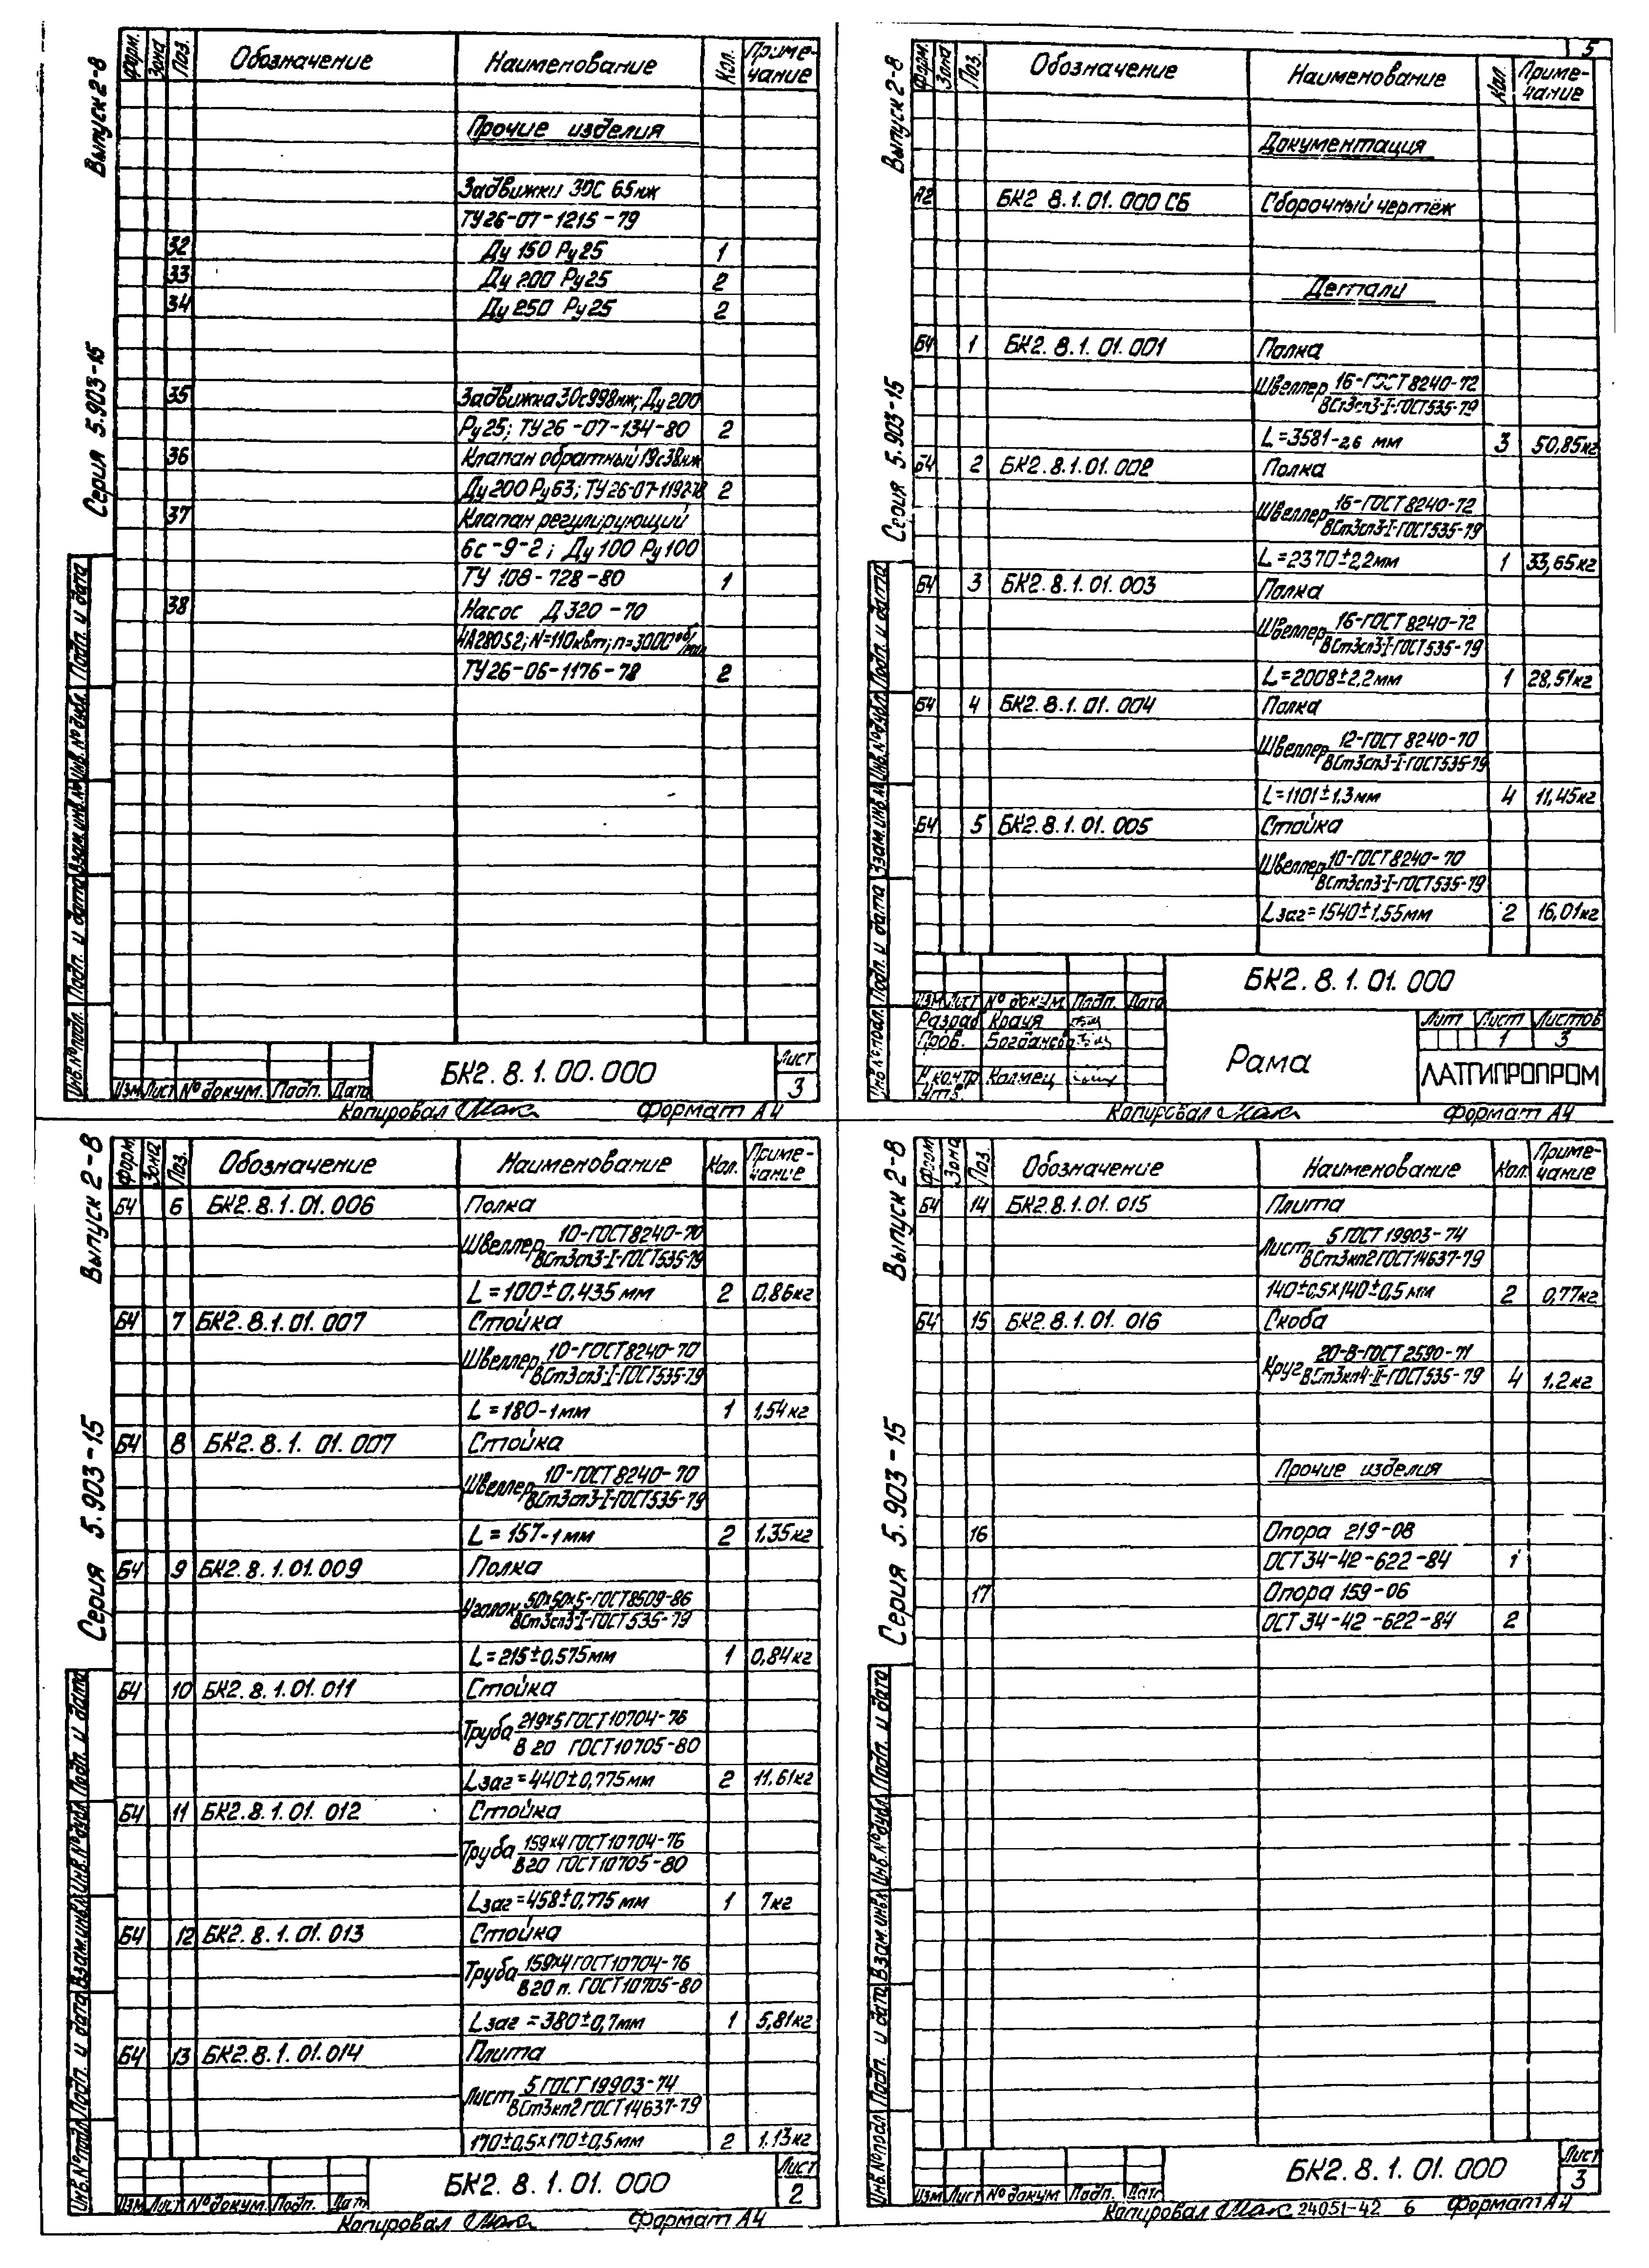 Выпуск 2-8
Серия 5.903-15
Форм. Зона Поз. Обозначение Наименование Кол. Приме-
чание
Прочие изделия
Задвижки 30С 65нж
ТУ26-07-1215-79
32 Ду 150 Ру25 1
33 Ду 200 Ру25 2
34 Ду 250 Ру25 2
35 Задвижка 30с998нж; Ду200
Ру25; ТУ26-07-134-80 2
36 Клапан обратный 19с38нж
Ду200 Ру63; ТУ26-07-1192-78 2
37 Клапан регулирующий
6с-9-2; Ду100 Ру100
ТУ 108-728-80 1
38 Насос Д320-70
4А280S2; N=110квт; n=3000об/мин
ТУ26-06-1176-78 2
Инв.№подл. Подп. и дата Взам.инв.№ Инв.№дубл. Подп. и дата
Изм Лист №докум. Подп. Дата
БК2.8.1.00.000
Лист
3
Копировал Формат А4
5
Выпуск 2-8
Серия 5.903-15
Форм. Зона Поз. Обозначение Наименование Кол Приме-
чание
Документация
А2 БК2 8.1.01.000СБ Сборочный чертёж
Детали
Б4 1 БК2.8.1.01.001 Полка
Швеллер 16-ГОСТ8240-72
ВСт3сп3-I-ГОСТ535-79
L=3581-2,6 мм 3 50,85кг
Б4 2 БК2.8.1.01.002 Полка
Швеллер 16-ГОСТ8240-72
ВСт3сп3-I-ГОСТ535-79
L=2370±2,2мм 1 33,65кг
Б4 3 БК2.8.1.01.003 Полка
Швеллер 16-ГОСТ8240-72
ВСт3сп3-I-ГОСТ535-79
L=2008±2,2мм 1 28,51кг
Б4 4 БК2.8.1.01.004 Полка
Швеллер 12-ГОСТ 8240-70
ВСт3сп3-I-ГОСТ535-79
L=1101±1,3мм 4 11,45кг
Б4 5 БК2.8.1.01.005 Стойка
Швеллер 10-ГОСТ8240-70
ВСт3сп3-I-ГОСТ535-79
Lзаг=1540±1,55мм 2 16,01кг
Инв.№подл. Подп. и дата Взам.инв.№ Инв.№дубл. Подп. и дата
БК2.8.1.01.000
Изм Лист №докум. Подп. Дата
Разраб Крауя
Пров. Богданова
Н.контр Калмец
Утв.
Рама
Лит Лист Листов
1 3
ЛАТГИПРОПРОМ
Копировал Формат А4
Выпуск 2-8
Серия 5.903-15
Форм. Зона Поз. Обозначение Наименование Кол. Приме-
чание
Б4 6 БК2.8.1.01.006 Полка
Швеллер 10-ГОСТ8240-70
ВСт3сп3-I-ГОСТ535-79
L=100±0,435мм 2 0,86кг
Б4 7 БК2.8.1.01.007 Стойка
Швеллер 10-ГОСТ8240-70
ВСт3сп3-I-ГОСТ535-79
L=180-1мм 1 1,54кг
Б4 8 БК2.8.1.01.007 Стойка
Швеллер 10-ГОСТ8240-70
ВСт3сп3-I-ГОСТ535-79
L=157-1мм 2 1,35кг
Б4 9 БК2.8.1.01.009 Полка
Уголок 50х50х5-ГОСТ8509-86
ВСт3сп3-I-ГОСТ535-79
L=215±0,575мм 1 0,84кг
Б4 10 БК2.8.1.01.011 Стойка
Труба 219х5 ГОСТ10704-76
В 20 ГОСТ10705-80
Lзаг=440±0,775мм 2 11,61кг
Б4 11 БК2.8.1.01.012 Стойка
Труба 159х4 ГОСТ10704-76
В20 ГОСТ10705-80
Lзаг=458±0,775мм 1 7кг
Б4 12 БК2.8.1.01.013 Стойка
Труба 159х4 ГОСТ10704-76
В20 п. ГОСТ10705-80
Lзаг=380±0,7мм 1 5,81кг
Б4 13 БК2.8.1.01.014 Плита
Лист 5 ГОСТ19903-74
ВСт3кп2 ГОСТ14637-79
170±0,5х170±0,5мм 2 1,13кг
Инв.№подл. Подп. и дата Взам.инв.№ Инв.№дубл. Подп. и дата
Изм Лист №докум. Подп. Дата
БК2.8.1.01.000
Лист
2
Копировал Формат А4
Выпуск 2-8
Серия 5.903-15
Форм Зона Поз. Обозначение Наименование Кол. Приме-
чание
Б4 14 БК2.8.1.01.015 Плита
Лист 5 ГОСТ 19903-74
ВСт3кп2 ГОСТ14637-79
140±0,5х140±0,5мм 2 0,77кг
Б4 15 БК2.8.1.01.016 Скоба
Круг 20-В-ГОСТ2590-71
ВСт3кп4-II-ГОСТ535-79 4 1.2кг
Прочие изделия
16 Опора 219-08
ОСТ34-42-622-84 1
17 Опора 159-06
ОСТ 34-42-622-84 2
Инв.№подл Подп. и дата Взам.инв.№ Инв.№дубл. Подп. и дата
Изм Лист №докум Подп. Дата
БК2.8.1.01.000
Лист
3
Копировал 24051-42 6 Формат А4